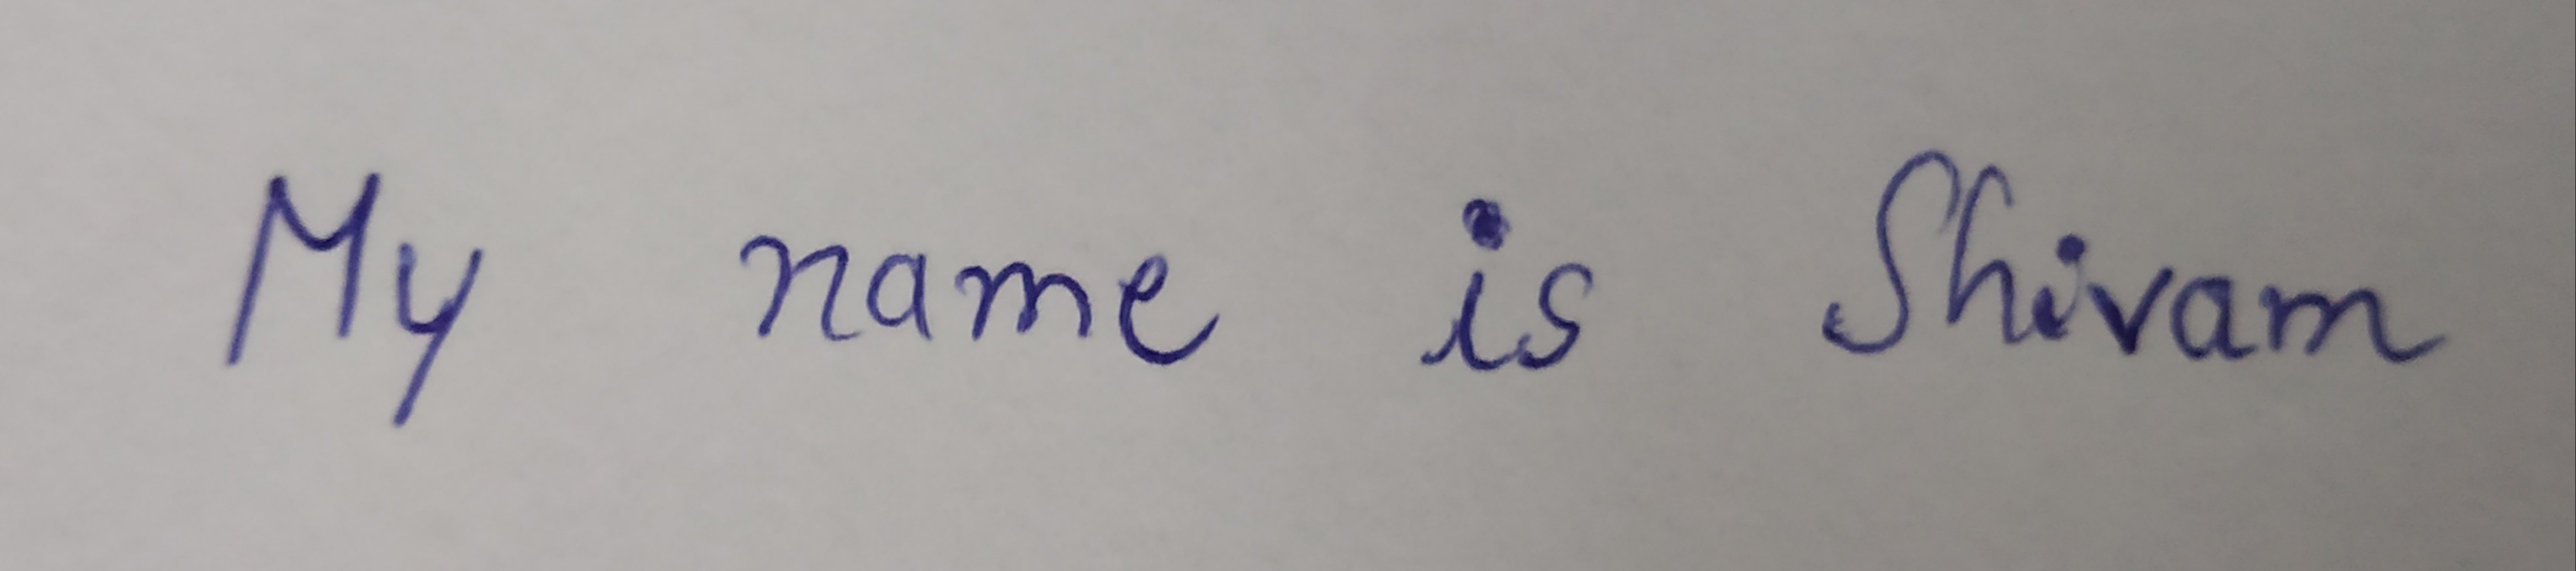 My name is Shivam